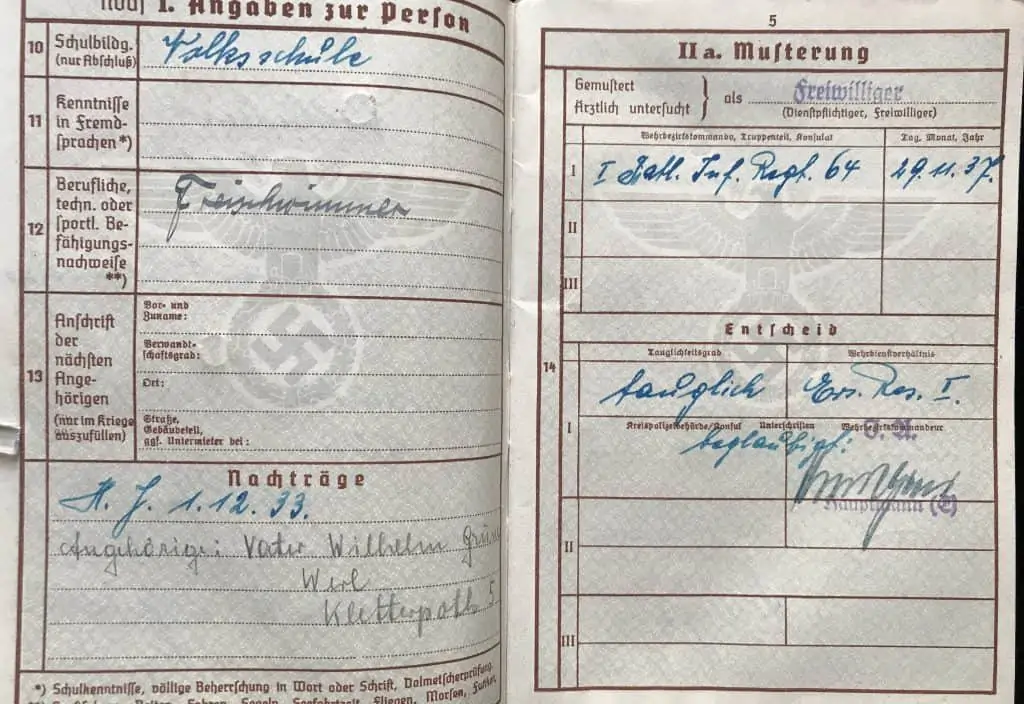 Noch I. Angaben zur Person
10 Schulbildg. (nur Abschluß)
Volksschule
11 Kenntnisse in Fremdsprachen*)
12 Berufliche, techn. oder sportl. Befähigungsnachweise **)
Freischwimmer
13 Anschrift der nächsten Angehörigen (nur im Kriege auszufüllen)
Vor- und Zuname:
Verwandtschaftsgrad:
Ort:
Straße, Gebäudeteil, ggf. Untermieter bei:
Nachträge
H. J. 1. 12. 33.
Angehörige: Vater Wilhelm
Werl
Kletterpoth 5
*) Schulkenntnisse, völlige Beherrschung in Wort oder Schrift, Dolmetscherprüfung.
Reiten, Fahren, Segeln, Seefahrtzeit, Fliegen, Morsen, Funker,
5
II a. Musterung
Gemustert
Ärztlich untersucht } als Freiwilliger
(Dienstpflichtiger, Freiwilliger)
Wehrbezirkskommando, Truppenteil, Konsulat
Tag, Monat, Jahr
I
I Batl. Inf. Regt. 64
29. 11. 37.
II
III
Entscheid
14
Tauglichkeitsgrad
Wehrdienstverhältnis
tauglich
Ers. Res. I.
I
Kreispolizeibehörde/Konsul Unterschriften Wehrbezirkskommandeur
beglaubigt:
Hauptmann (E)
II
III